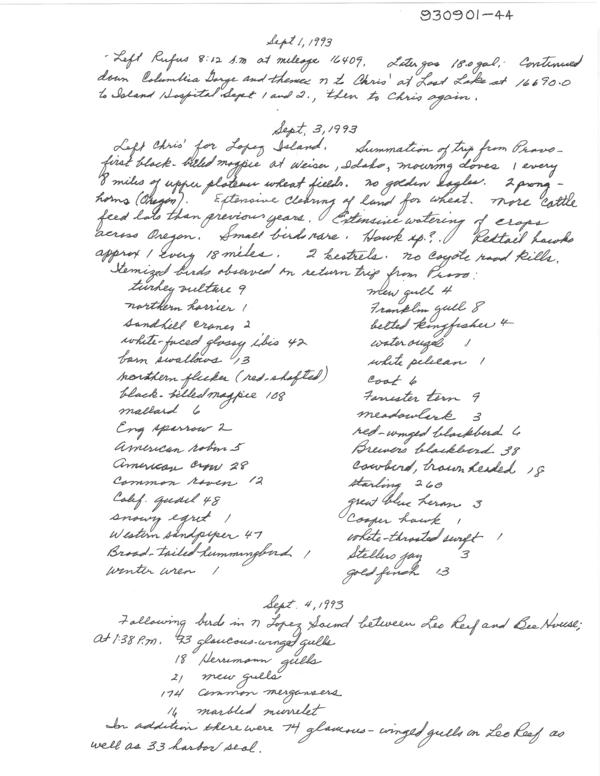 930901-44
Sept 1, 1993
- Left Rufus 8:12 A.M at mileage 16409. Later gas 18.0 gal.. Continued
down Columbia Gorge and thence N to Chris' at Lost Lake at 16690.0
to Island Hospital Sept 1 and 2., then to Chris again.
Sept. 3, 1993
Left Chris' for Lopez Island. Summation of trip from Provo-
first black-billed magpie at Weiser, Idaho, mourning doves 1 every
8 miles of upper plateau wheat fields. no golden eagles. 2 prong-
horns (Oregon). Extensive clearing of land for wheat. more cattle
feed lots than previous years. Extensive watering of crops
across Oregon. Small birds rare. Hawk sp.?. Redtail hawks
approx 1 every 18 miles. 2 kestrels. no coyote road kills.
Itemized birds observed on return trip from Provo:
turkey vulture 9
northern harrier 1
sandhill cranes 2
white-faced glossy ibis 42
barn swallows 13
northern flicker (red-shafted)
black-billed magpie 108
mallard 6
Eng sparrow 2
American robin 5
American crow 28
Common raven 12
Calif. quail 48
snowy egret 1
Western sandpiper 47
Broad-tailed hummingbird 1
winter wren 1
mew gull 4
Franklin gull 8
belted kingfisher 4
water ouzel 1
white pelican 1
coot 6
Forrester tern 9
meadowlark 3
red-winged blackbird 6
Brewers blackbird 38
cowbird, brown headed 18
starling 260
great blue heron 3
Cooper hawk 1
white-throated swift 1
Stellers jay 3
gold finch 13
Sept. 4, 1993
Following birds in N Lopez Sound between Leo Reef and Bee House;
At 1:38 P.M. 93 glaucous-winged gulls
18 Herrmann gulls
21 mew gulls
174 Common mergansers
16 marbled murrelet
In addition there were 74 glaucous-winged gulls on Leo Reef as
well as 33 harbor seal.